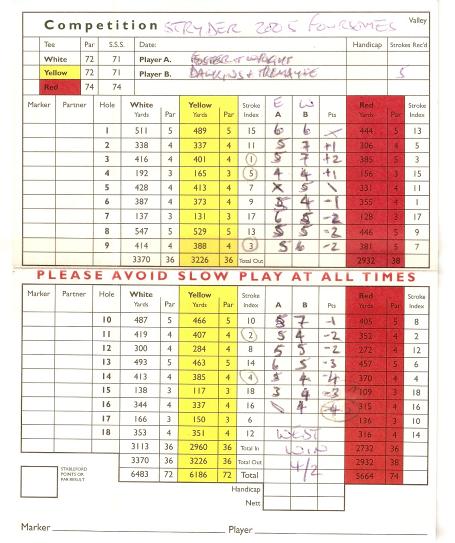 Competition STRYDER 2005 FOURSOMES Valley
Tee Par S.S.S. Date: Handicap Strokes Rec'd
White 72 71 Player A. FOSTER + WRIGHT
Yellow 72 71 Player B. DAWKINS + TREMAYNE 5
Red 74 74
Marker Partner Hole White Yards Par Yellow Yards Par Stroke Index E A W B Pts Red Yards Par Stroke Index
1 511 5 489 5 15 6 6 444 5 13
2 338 4 337 4 11 5 7 +1 306 4 5
3 416 4 401 4 1 5 7 +2 385 5 3
4 192 3 165 3 5 4 4 +1 156 3 15
5 428 4 413 4 7 X 5 \ 331 4 11
6 387 4 373 4 9 5 4 -1 355 4 1
7 137 3 131 3 17 6 5 -2 128 3 17
8 547 5 529 5 13 5 5 -2 446 5 9
9 414 4 388 4 3 5 6 -2 381 5 7
3370 36 3226 36 Total Out 2932 38
PLEASE AVOID SLOW PLAY AT ALL TIMES
Marker Partner Hole White Yards Par Yellow Yards Par Stroke Index A B Pts Red Yards Par Stroke Index
10 487 5 466 5 10 7 -1 405 5 8
11 419 4 407 4 2 5 4 -2 352 4 2
12 300 4 284 4 8 5 5 -2 272 4 12
13 493 5 463 5 14 6 5 -3 457 5 6
14 413 4 385 4 4 5 4 -4 370 4 4
15 138 3 117 3 18 3 4 -3 109 3 18
16 344 4 337 4 16 \ 4 -4 315 4 16
17 166 3 150 3 6 136 3 10
18 353 4 351 4 12 WEST 316 4 14
3113 36 2960 36 Total In WIN 2732 36
3370 36 3226 36 Total Out 4/2 2932 38
6483 72 6186 72 Total 5664 74
STABLEFORD POINTS OR PAR RESULT
Handicap
Nett
Marker Player